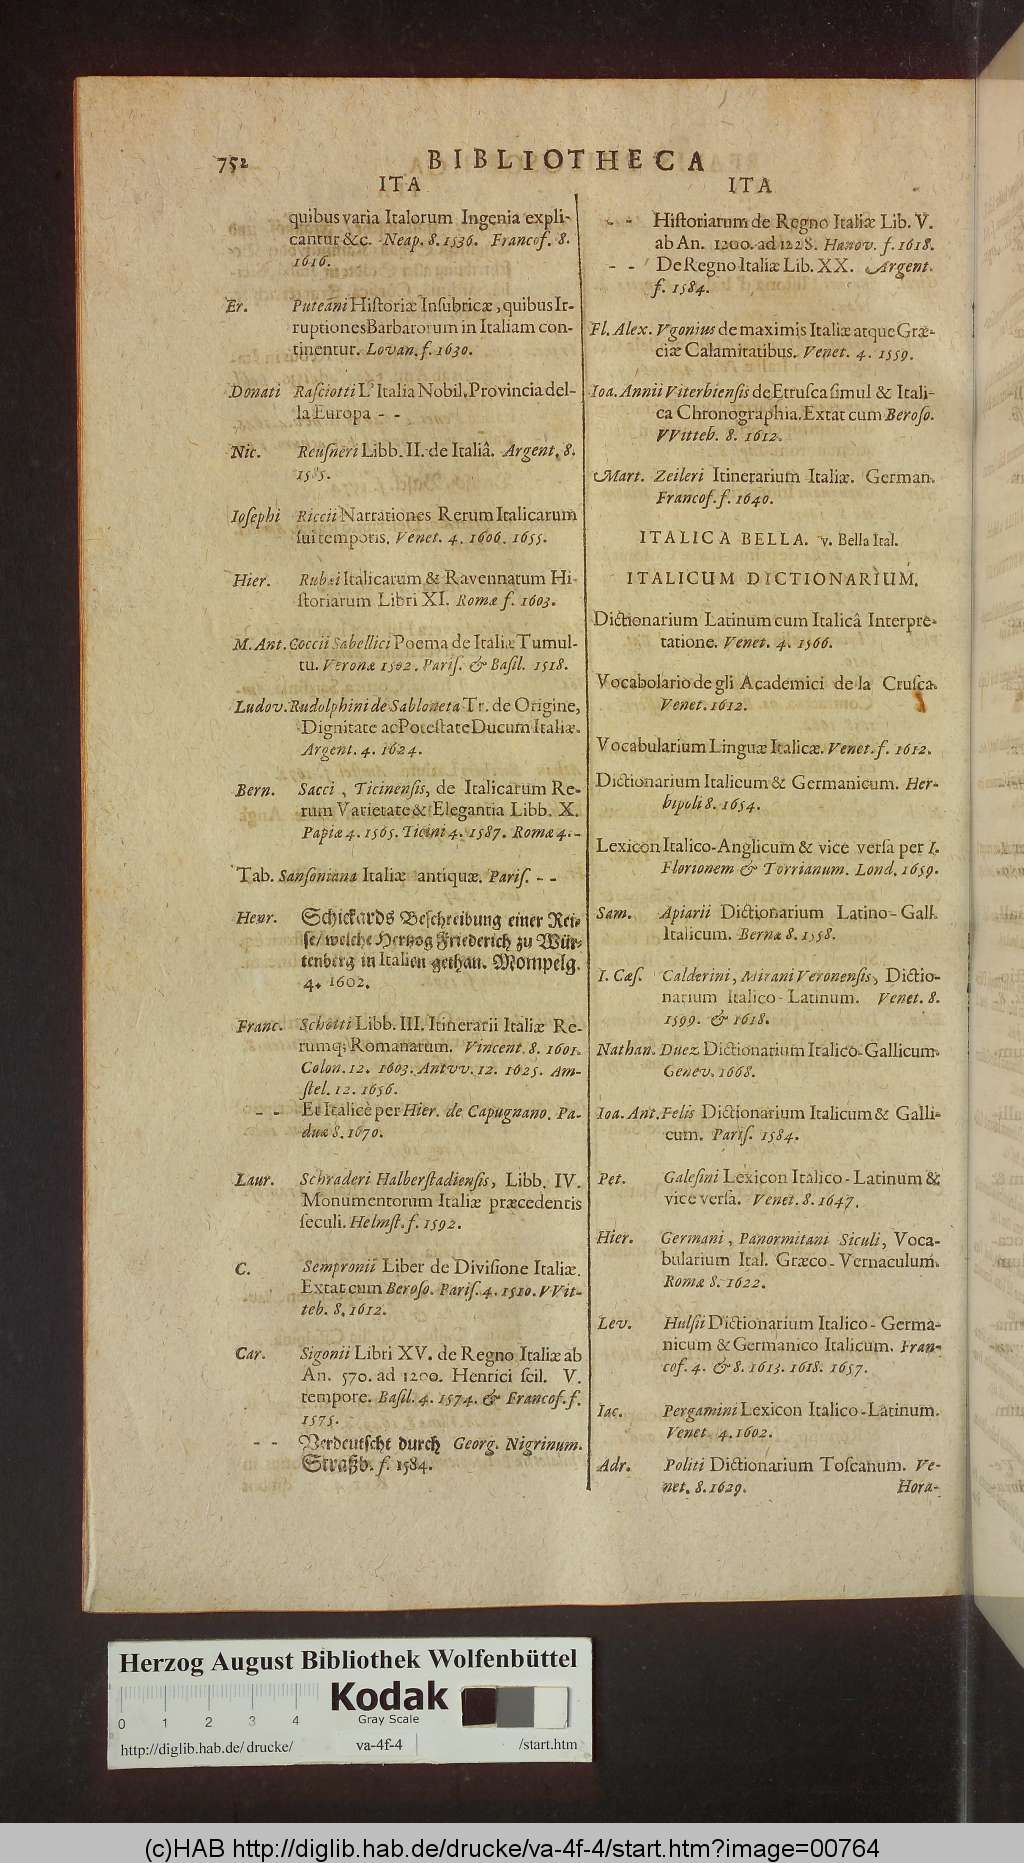 752
BIBLIOTHECA
ITA
quibus varia Italorum Ingenia expli-
cantur &c. Neap. 8. 1536. Francof. 8.
1616.
Er. Puteani Historiæ Insubricæ, quibus Ir-
ruptiones Barbarorum in Italiam con-
tinentur. Lovan. f. 1630.
Donati Rasciotti L'Italia Nobil. Provincia del-
la Europa - -
Nic. Reusneri Libb. II. de Italiâ. Argent. 8.
1585.
Iosephi Riccii Narrationes Rerum Italicarum
sui temporis. Venet. 4. 1606. 1655.
Hier. Rubei Italicarum & Ravennatum Hi-
storiarum Libri XI. Romæ f. 1603.
M. Ant. Coccii Sabellici Poema de Italiæ Tumul-
tu. Veronæ 1502. Paris. & Basil. 1518.
Ludov. Rudolphini de Sabloneta Tr. de Origine,
Dignitate ac Potestate Ducum Italiæ.
Argent. 4. 1624.
Bern. Sacci, Ticinensis, de Italicarum Re-
rum Varietate & Elegantia Libb. X.
Papiæ 4. 1565. Ticini 4. 1587. Romæ 4. -
Tab. Sansoniana Italiæ antiquæ. Paris. - -
Henr. Schickards Beschreibung einer Rei-
se/ welche Hertzog Friederich zu Wür-
tenberg in Italien gethan. Mompelg.
4. 1602.
Franc. Schotti Libb. III. Itinerarii Italiæ Re-
rumq; Romanarum. Vincent. 8. 1601.
Colon. 12. 1603. Antvv. 12. 1625. Am-
stel. 12. 1656.
- - Et Italicè per Hier. de Capugnano. Pa-
duæ 8. 1670.
Laur. Schraderi Halberstadiensis, Libb. IV.
Monumentorum Italiæ præcedentis
seculi. Helmst. f. 1592.
C. Sempronii Liber de Divisione Italiæ.
Extat cum Beroso. Paris. 4. 1510. VVit-
teb. 8. 1612.
Car. Sigonii Libri XV. de Regno Italiæ ab
An. 570. ad 1200. Henrici scil. V.
tempore. Basil. 4. 1574. & Francof. f.
1575.
- - Verdeutscht durch Georg. Nigrinum.
Straßb. f. 1584.
ITA
- - Historiarum de Regno Italiæ Lib. V.
ab An. 1200. ad 1228. Hanov. f. 1618.
- - De Regno Italiæ Lib. XX. Argent.
f. 1584.
Fl. Alex. Vgonius de maximis Italiæ atque Græ-
ciæ Calamitatibus. Venet. 4. 1559.
Ioa. Annii Viterbiensis de Etrusca simul & Itali-
ca Chronographia. Extat cum Beroso.
VVitteb. 8. 1612.
Mart. Zeileri Itinerarium Italiæ. German.
Francof. f. 1640.
ITALICA BELLA. v. Bella Ital.
ITALICUM DICTIONARIUM.
Dictionarium Latinum cum Italicâ Interpre-
tatione. Venet. 4. 1566.
Vocabolario de gli Academici de la Crusca.
Venet. 1612.
Vocabularium Linguæ Italicæ. Venet. f. 1612.
Dictionarium Italicum & Germanicum. Her-
bipoli 8. 1654.
Lexicon Italico-Anglicum & vice versa per I.
Florionem & Torrianum. Lond. 1659.
Sam. Apiarii Dictionarium Latino-Gall.
Italicum. Bernæ 8. 1558.
I. Cæs. Calderini, Mirani Veronensis, Dictio-
narium Italico-Latinum. Venet. 8.
1599. & 1618.
Nathan. Duez Dictionarium Italico-Gallicum.
Genev. 1668.
Ioa. Ant. Felis Dictionarium Italicum & Galli-
cum. Paris. 1584.
Pet. Galesini Lexicon Italico-Latinum &
vice versa. Venet. 8. 1647.
Hier. Germani, Panormitani Siculi, Voca-
bularium Ital. Græco-Vernaculum.
Romæ 8. 1622.
Lev. Hulsii Dictionarium Italico-Germa-
nicum & Germanico Italicum. Fran-
cof. 4. & 8. 1613. 1618. 1657.
Iac. Pergamini Lexicon Italico-Latinum.
Venet. 4. 1602.
Adr. Politi Dictionarium Toscanum. Ve-
net. 8. 1629.
Hora-
Herzog August Bibliothek Wolfenbüttel
Kodak
Gray Scale
0 1 2 3 4
http://diglib.hab.de/drucke/ va-4f-4 /start.htm
(c)HAB http://diglib.hab.de/drucke/va-4f-4/start.htm?image=00764